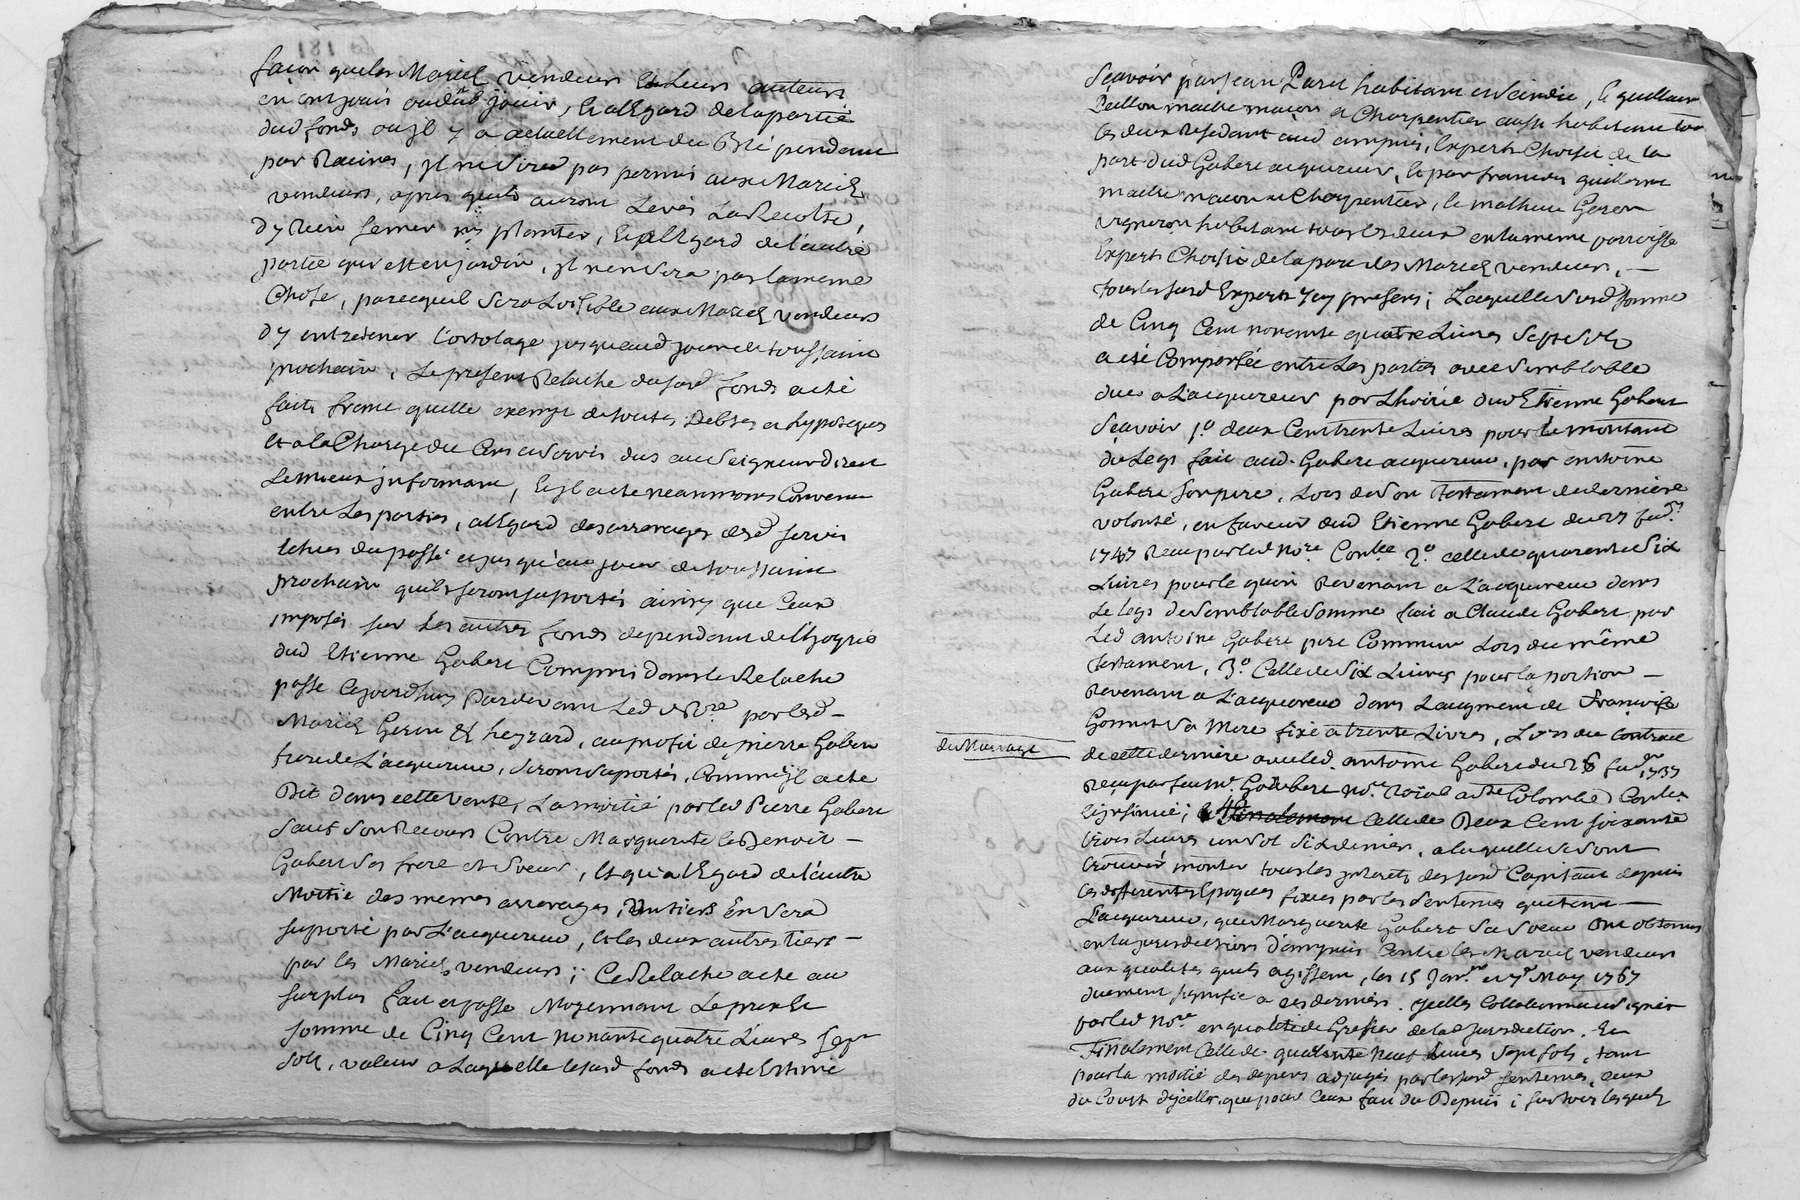 façon que les Mariés vendeurs et Leurs auteurs
en ont jouis ou dûs jouir, Et a l'Egard de la partie
dud fonds ou jl y a actuellement du Blé pendant
par Racines, jl ne sera pas permis aux Mariés
vendeurs, apres quils auront Levés La Recolte,
d'y Rien semer ny planter, Et a l'Egard de l'autre
partie qui est en jardin, jl n'en sera pas la meme
Chose, parcequ'il sera Loisible aux Mariés vendeurs
d'y entretenir l'ortolage jusqu'aud jour de toussaint
prochain, Le present Relache dususd fonds a eté
fait franc quitte exempt de toutes Debtes et hypoteques
et a la Charge du Cens et servis dus au Seigneur Direct
Le mieux jnformant, Et jl a eté neanmoins Convenu
entre Les parties, a l'Egard des arrerages desd servis
echus du passé et jusqu'au jour de toussaint
prochain quils seront suportés ainsy que Ceux
jmposés sur Les autres fonds dependant de l'hoyrie
dud Etienne Gabert Compris dans le Relache
passé cejourdhuy Pardevant Led nore par lesd
Mariés Geron & heyrard, au profit de pierre Gabert
frere de L'acquereur, seront suportés, Comme jl a eté
Dit dans cette vente, La moitié par led Pierre Gabert
sauf son Recours Contre Marguerite et Benoit
Gabert ses frere et soeur, Et qu'a l'Egard de l'autre
Moitié des memes arrerages, Un tiers En sera
suporté par L'acquereur, et les deux autres tiers
par les Mariés vendeurs; Ce Relache a eté au
surplus fait et passé Moyennant Le prix Et
somme de Cinq Cent Nonante quatre Livres sept
sols, valeur a Laquelle lesusd fonds a eté Estimé
Sçavoir par Jean Paret habitant et scindic, le guillaume
Peillon maitre maçon et Charpentier aussi habitant tous
les deux Residant aud ampuis, Experts Choisis de la
part dud Gabert acquereur, et par francois guillerme
maitre maçon et Charpentier, et mathieu Geron
vigneron habitant tous les deux en la meme parroisse
Experts Choisis de la part des Mariés vendeurs,
tous lessusd Experts jcy presens; Laquelle susd somme
de Cinq Cent nonante quatre Livres Sept Sols
a eté Compensée entre Les parties avec Semblable
due a L'acquereur par L'hoirie dud Etienne Gabert
Sçavoir 1.o deux Cent trente Livres pour le montant
du Legs fait aud. Gabert acquereur, par antoine
Gabert son pere, Lors de son Testament de derniere
volonté, en faveur dud Etienne Gabert du 27
1747 Reçu par led Nore Contlé 2.o celle de quarante Six
Livres pour le quart Revenant a L'acquereur dans
Le legs de Semblable Somme fait a Claude Gabert par
Led antoine Gabert pere Commun Lors du même
Testament, 3.o Celle de Six Livres pour la portion
Revenant a L'acquereur dans L'augment de Françoise
Gonnet Sa Mere fixé a trente Livres, Lors du Contract
du Mariage
de cette derniere avec led. antoine Gabert du 26 1737
Reçu par feu Me Nore Roial a Ste Colombe Contlé
et jnsinué; 4o Celle de Deux Cent soixante
trois Livres un sol Six deniers, a laquelle se sont
trouvés monter tous les jnterets desusd Capitaux depuis
les differentes Epoques fixées par les sentences que tant
L'acquereur, que Marguerite Gabert Sa Soeur ont obtenus
en la jurisdiction d'ampuis Contre les Mariés vendeurs
aux qualités quils agissent, les 15 Janer et 7e May 1767
duement signifié a ces derniers, Expediés
par led Nore en qualité de Greffier de lad jurisdiction. Et
Finalement Celle de quarante Neuf Livres Sept sols, tant
pour la moitié des depens adjugés par lessusd sentences, ceux
du Cout d'jcelles, que pour Ceux fait du Depuis; sur tous lesquels